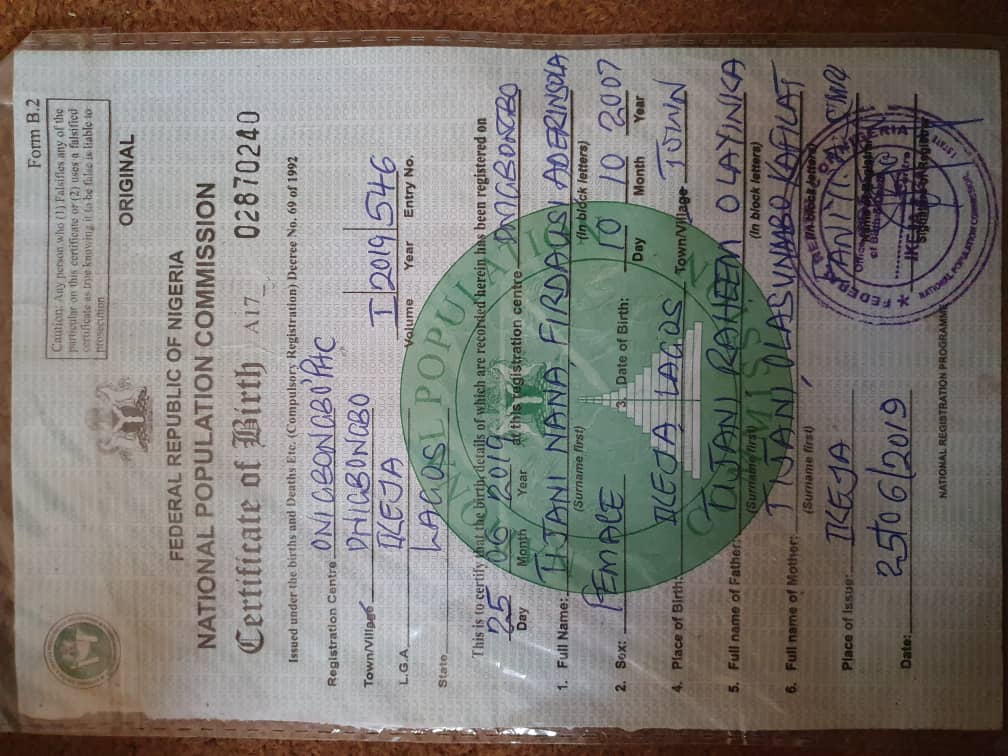 Form B.2
Caution: Any person who (1) Falsifies any of the
particular on this certificate or (2) uses a falsified
certificate as true knowing it to be false is liable to
prosecution
ORIGINAL
FEDERAL REPUBLIC OF NIGERIA
NATIONAL POPULATION COMMISSION
Certificate of Birth A17_ 02870240
Issued under the births and Deaths Etc. (Compulsory Registration) Decree No. 69 of 1992
Registration Centre ONIGBONGBO PHC
Town/Village ONIGBONGBO
L.G.A. IKEJA I 2019 546
Volume Year Entry No.
State LAGOS
This is to certify that the birth details of which are recorded herein has been registered on
25 06 2019 at this registration centre ONIGBONGBO
Day Month Year
1. Full Name: TIJANI NANA FIRDAUSI ADERINSOLA
(Surname first) (In block letters)
2. Sex: FEMALE 3. Date of Birth: 10 10 2007
Day Month Year
4. Place of Birth: IKEJA LAGOS Town/Village TOWN
5. Full name of Father: TIJANI RAHEEM OLAYINKA
(Surname first) (In block letters)
6. Full name of Mother: TIJANI OLASUNMBO KAFILAT
(Surname first) (In block letters)
Place of Issue: IKEJA
Date: 25/06/2019
NATIONAL REGISTRATION PROGRAMME
NATIONAL POPULATION COMMISSION